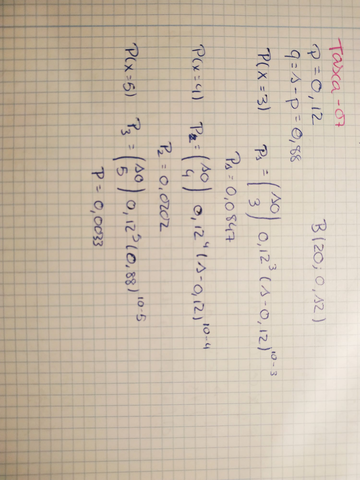 p = 0,12
q = 1 - p = 0,88
B(20; 0,12)
P(x = 3) P₁ = (10 3) 0,12³ (1 - 0,12)¹⁰⁻³
P₁ = 0,0847
P(x = 4) P₂ = (10 4) 0,12⁴ (1 - 0,12)¹⁰⁻⁴
P₂ = 0,0202
P(x = 5) P₃ = (10 5) 0,12⁵ (0,88)¹⁰⁻⁵
P = 0,0033